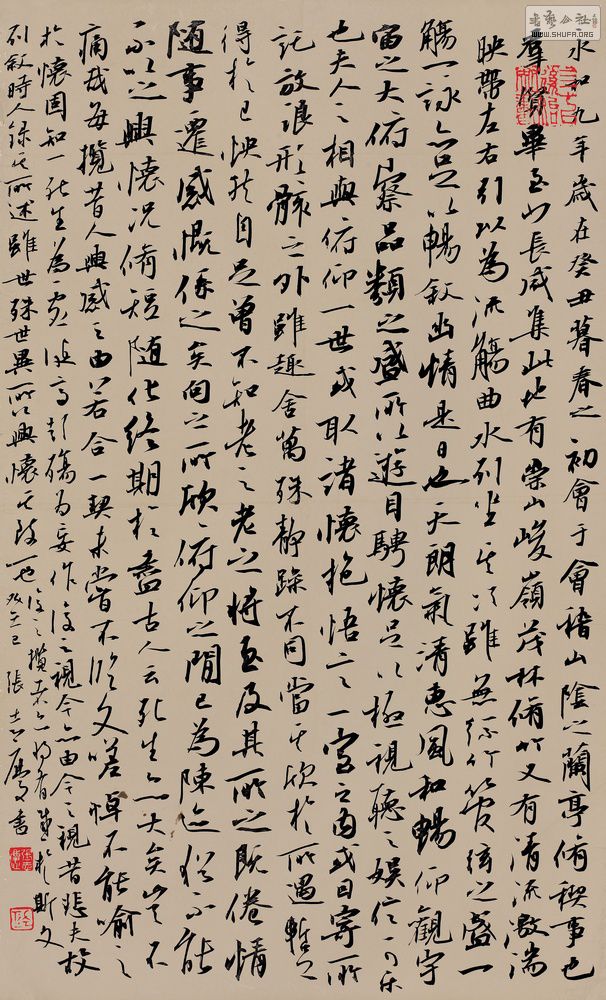 永和九年歲在癸丑暮春之初會于會稽山陰之蘭亭脩稧事也
羣賢畢至少長咸集此地有崇山峻嶺茂林脩竹又有清流激湍
映帶左右引以為流觴曲水列坐其次雖無絲竹管弦之盛一
觴一詠亦足以暢敘幽情是日也天朗氣清惠風和暢仰觀宇
宙之大俯察品類之盛所以遊目騁懷足以極視聽之娛信可樂
也夫人之相與俯仰一世或取諸懷抱悟言一室之內或因寄所
託放浪形骸之外雖趣舍萬殊靜躁不同當其欣於所遇暫
得於己快然自足曾不知老之老之將至及其所之既倦情
随事遷感慨係之矣向之所欣俯仰之間已為陳迹猶不能
不以之興懷況脩短随化終期於盡古人云死生亦大矣豈不
痛哉每攬昔人興感之由若合一契未嘗不臨文嗟悼不能喻之
於懷固知一死生為虛誕齊彭殤為妄作後之視今亦由今之視昔悲夫故
列敘時人錄其所述雖世殊世異所以興懷其致一也
後之攬者亦將有感於斯文
張書
WWW.SHUFA.ORG